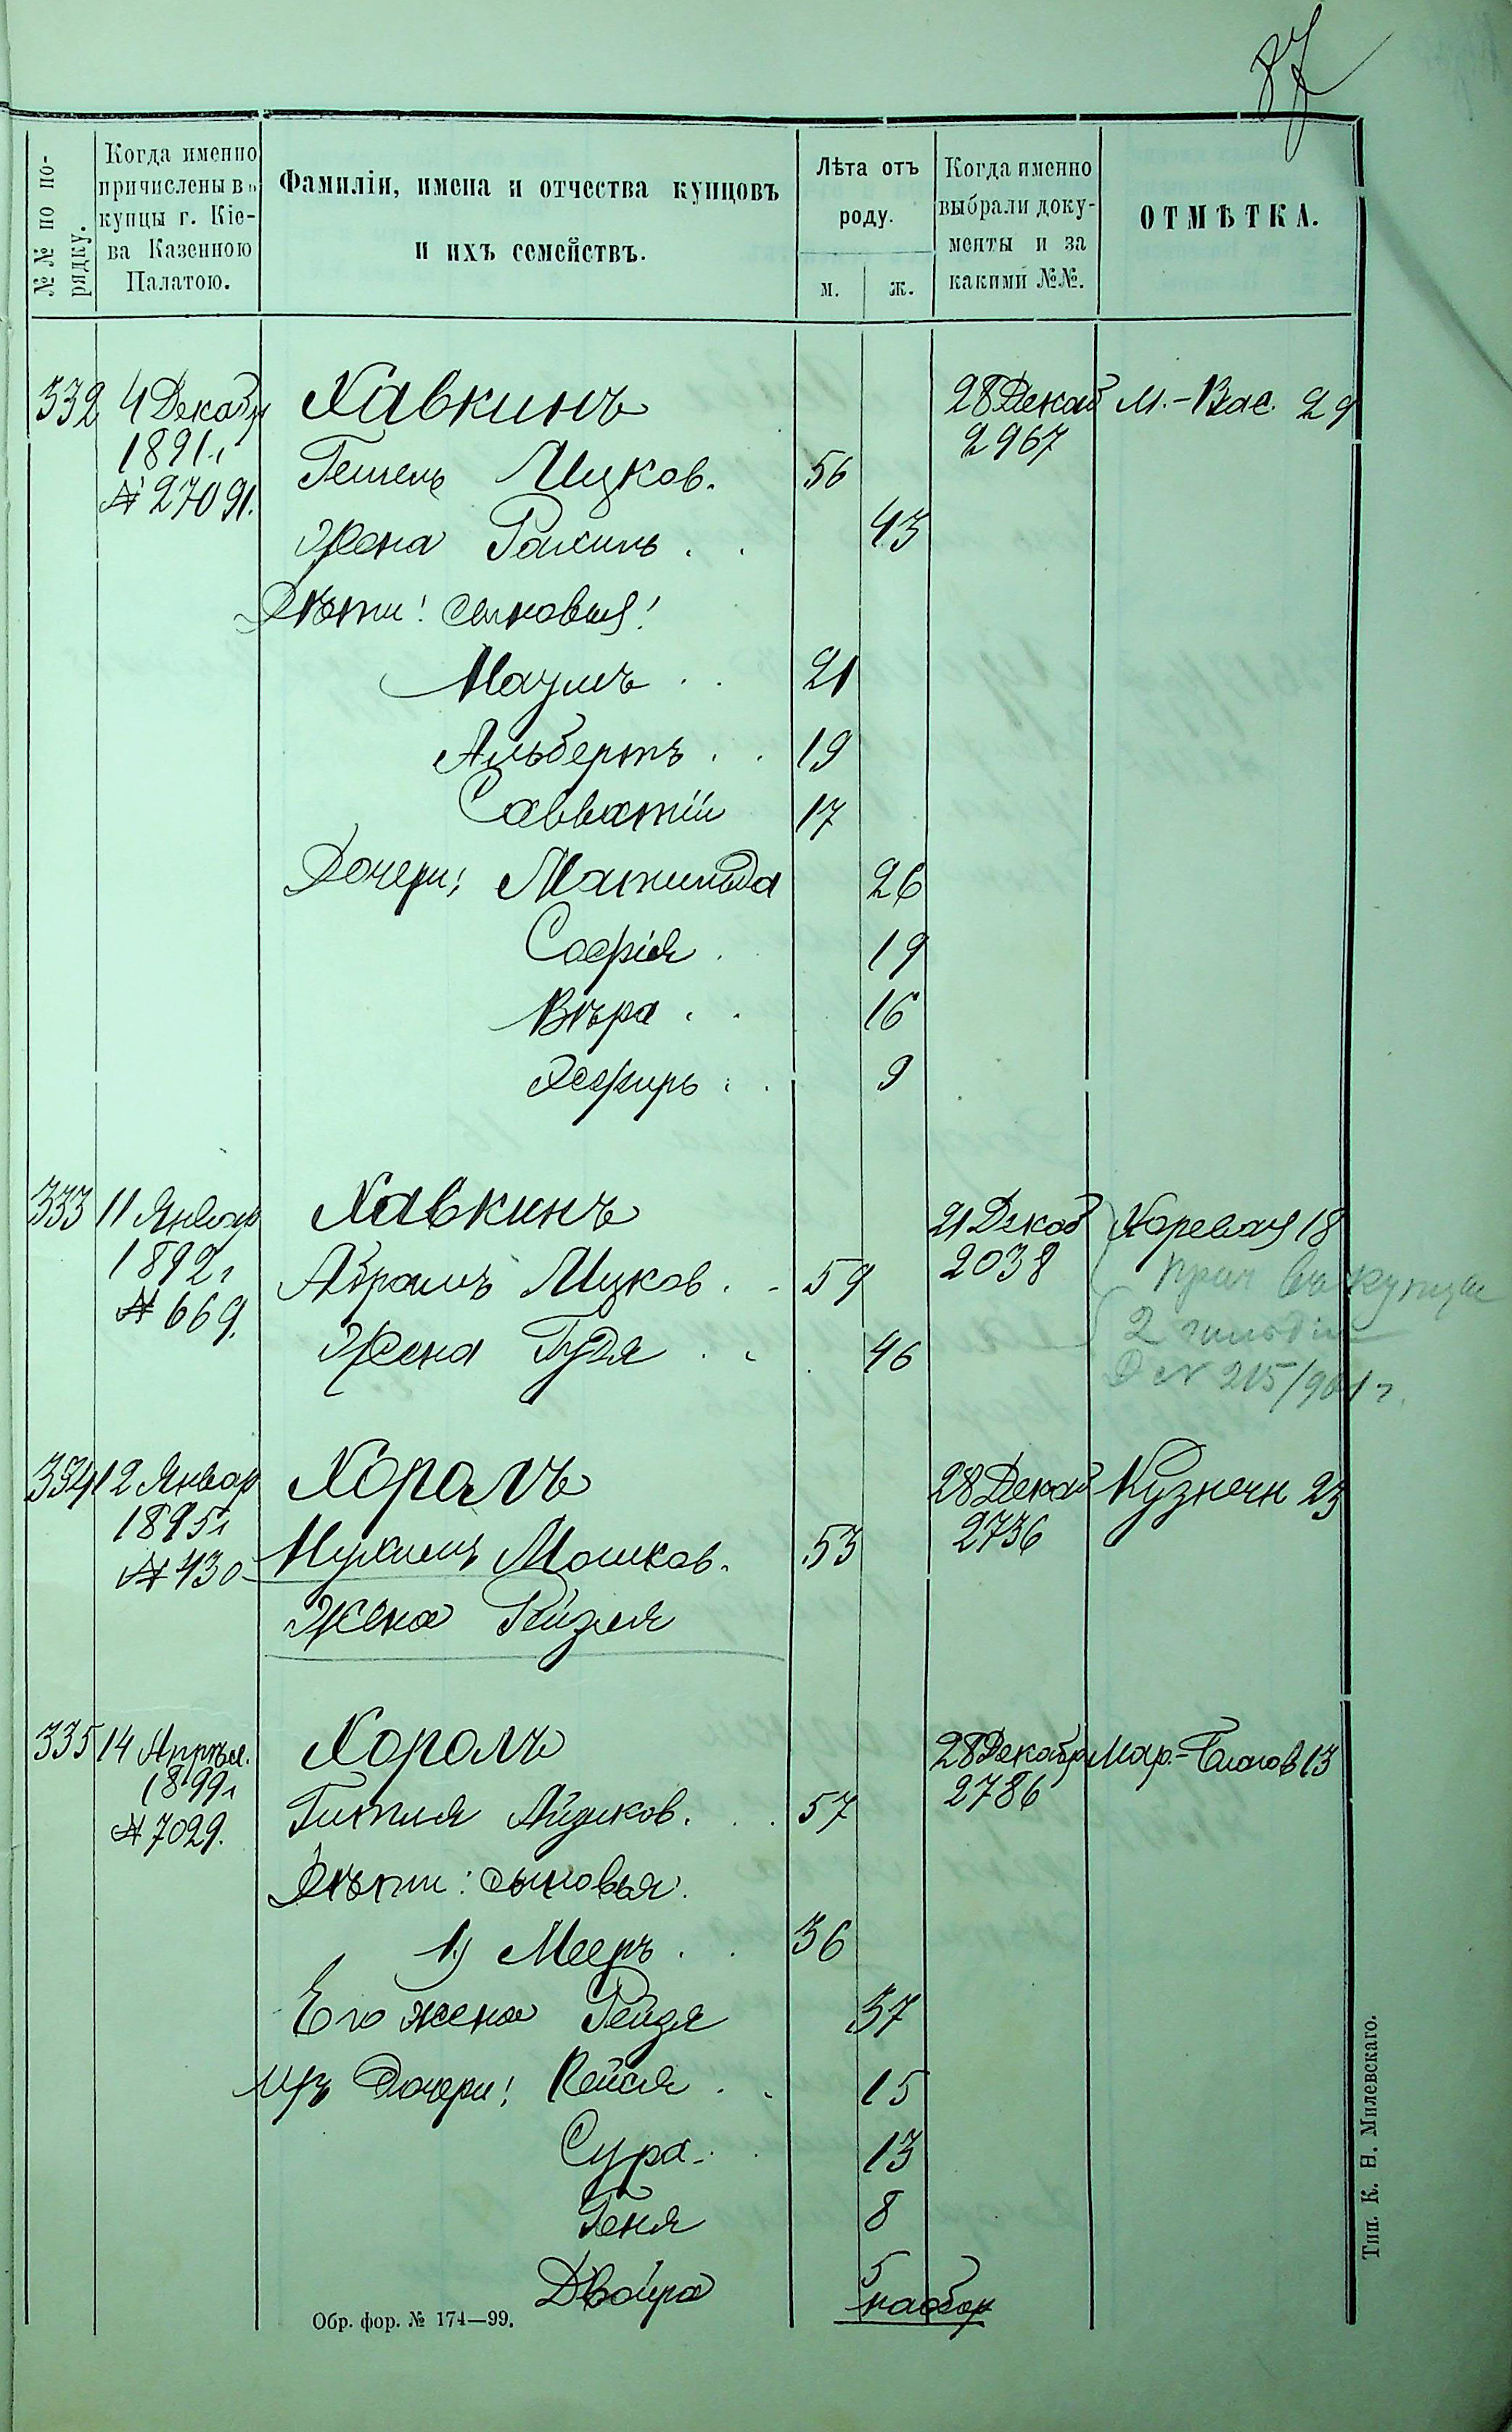 87
№№ по порядку.
Когда именно причислены въ купцы г. Кіева Казенною Палатою.
Фамиліи, имена и отчества купцовъ и ихъ семействъ.
Лѣта отъ роду.
м. ж.
Когда именно выбрали документы и за какими №№.
ОТМѢТКА.
332 4 Декабр Хавкинъ 28 Декаб М.-Вас. 29
1891 г 2967
№ 27091. Гешель Ицков. 56
Жена Рахиль . . 43
Дѣти: сыновья:
Наумъ . . 21
Альбертъ . . 19
Савватій 17
Дочери: Матильда 26
Софія . 19
Вѣра . . 16
Эсфирь . . 9
333 11 Январ Хавкинъ 21 Декаб Хоревая 18
1892 г 2038
Абрамъ Ицков. . . 59 прич въ купцы
№ 669. 2 гильдіи
Жена Гудя . . . 46
№ 215/901 г.
334 12 Январ Хоралъ 28 Декаб Кузнечн 23
1895 г 2736
№ 430 Нухимъ Мошков. 53
Жена Рейзля
335 14 Апрѣл. Хоралъ 28 Декабр Мар.-Благов 13
1899 г 2786
№ 7029. Гитля Айзиков. . . 57
Дѣти: сыновья.
1) Мееръ . . 36
Его жена Рейзя 37
Ихъ Дочери: Кейля . . 15
Сура . . 13
Геня 8
Двойра 5
наобор
Обр. фор. № 174—99.
Тип. К. Н. Милевскаго.